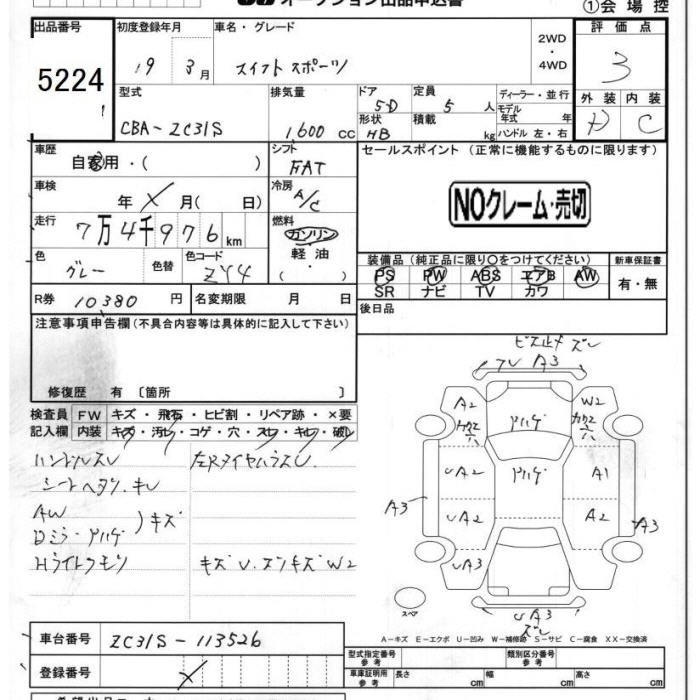 オークション出品申込書
①会場控
出品番号 5224
初度登録年月 19 3月
車名・グレード スイフトスポーツ
2WD・4WD
評価点 3
型式 CBA-ZC31S
排気量 1,600 cc
ドア 5D
形状 HB
定員 5 人
積載 kg
ディーラー・並行
モデル年式 年
ハンドル 左・右
外装 D
内装 C
車歴 自家用・( )
シフト FAT
セールスポイント (正常に機能するものに限ります)
車検 年 月( 日)
冷房 A/C
NOクレーム・売切
走行 7万4千976km
燃料 ガソリン 軽油・( )
色 グレー
色替
色コード ZY4
装備品(純正品に限り○をつけてください)
PS PW ABS エアB AW
SR ナビ TV カワ
新車保証書 有・無
R券 10380 円
名変期限 月 日
後日品
注意事項申告欄(不具合内容等は具体的に記入して下さい)
修復歴 有 〔箇所 〕
検査員記入欄
FW キズ・飛石・ヒビ割・リペア跡・×要
内装 キズ・汚レ・コゲ・穴・スレ・キレ・破レ
ハンドルスレ
シートヘタリ.キレ
AW
Dミラーアハゲ )キズ
Hライトクモリ
左RタイヤハウスU.
キズ U.スンキズ W2
ビス止メ ズレ
フU A3
A2 W2
アハゲ
カウエ 穴
UA2 アハゲ A1
A3 UA2 A2 A3
UA3
UA3
ズレ
スペア
A−キズ E−エクボ U−凹み W−補修跡 S−サビ C−腐食 XX−交換済
車台番号 ZC31S-113526
登録番号
型式指定番号 参考
類別区分番号 参考
車庫証明用 参考 長さ cm 幅 cm 高さ cm